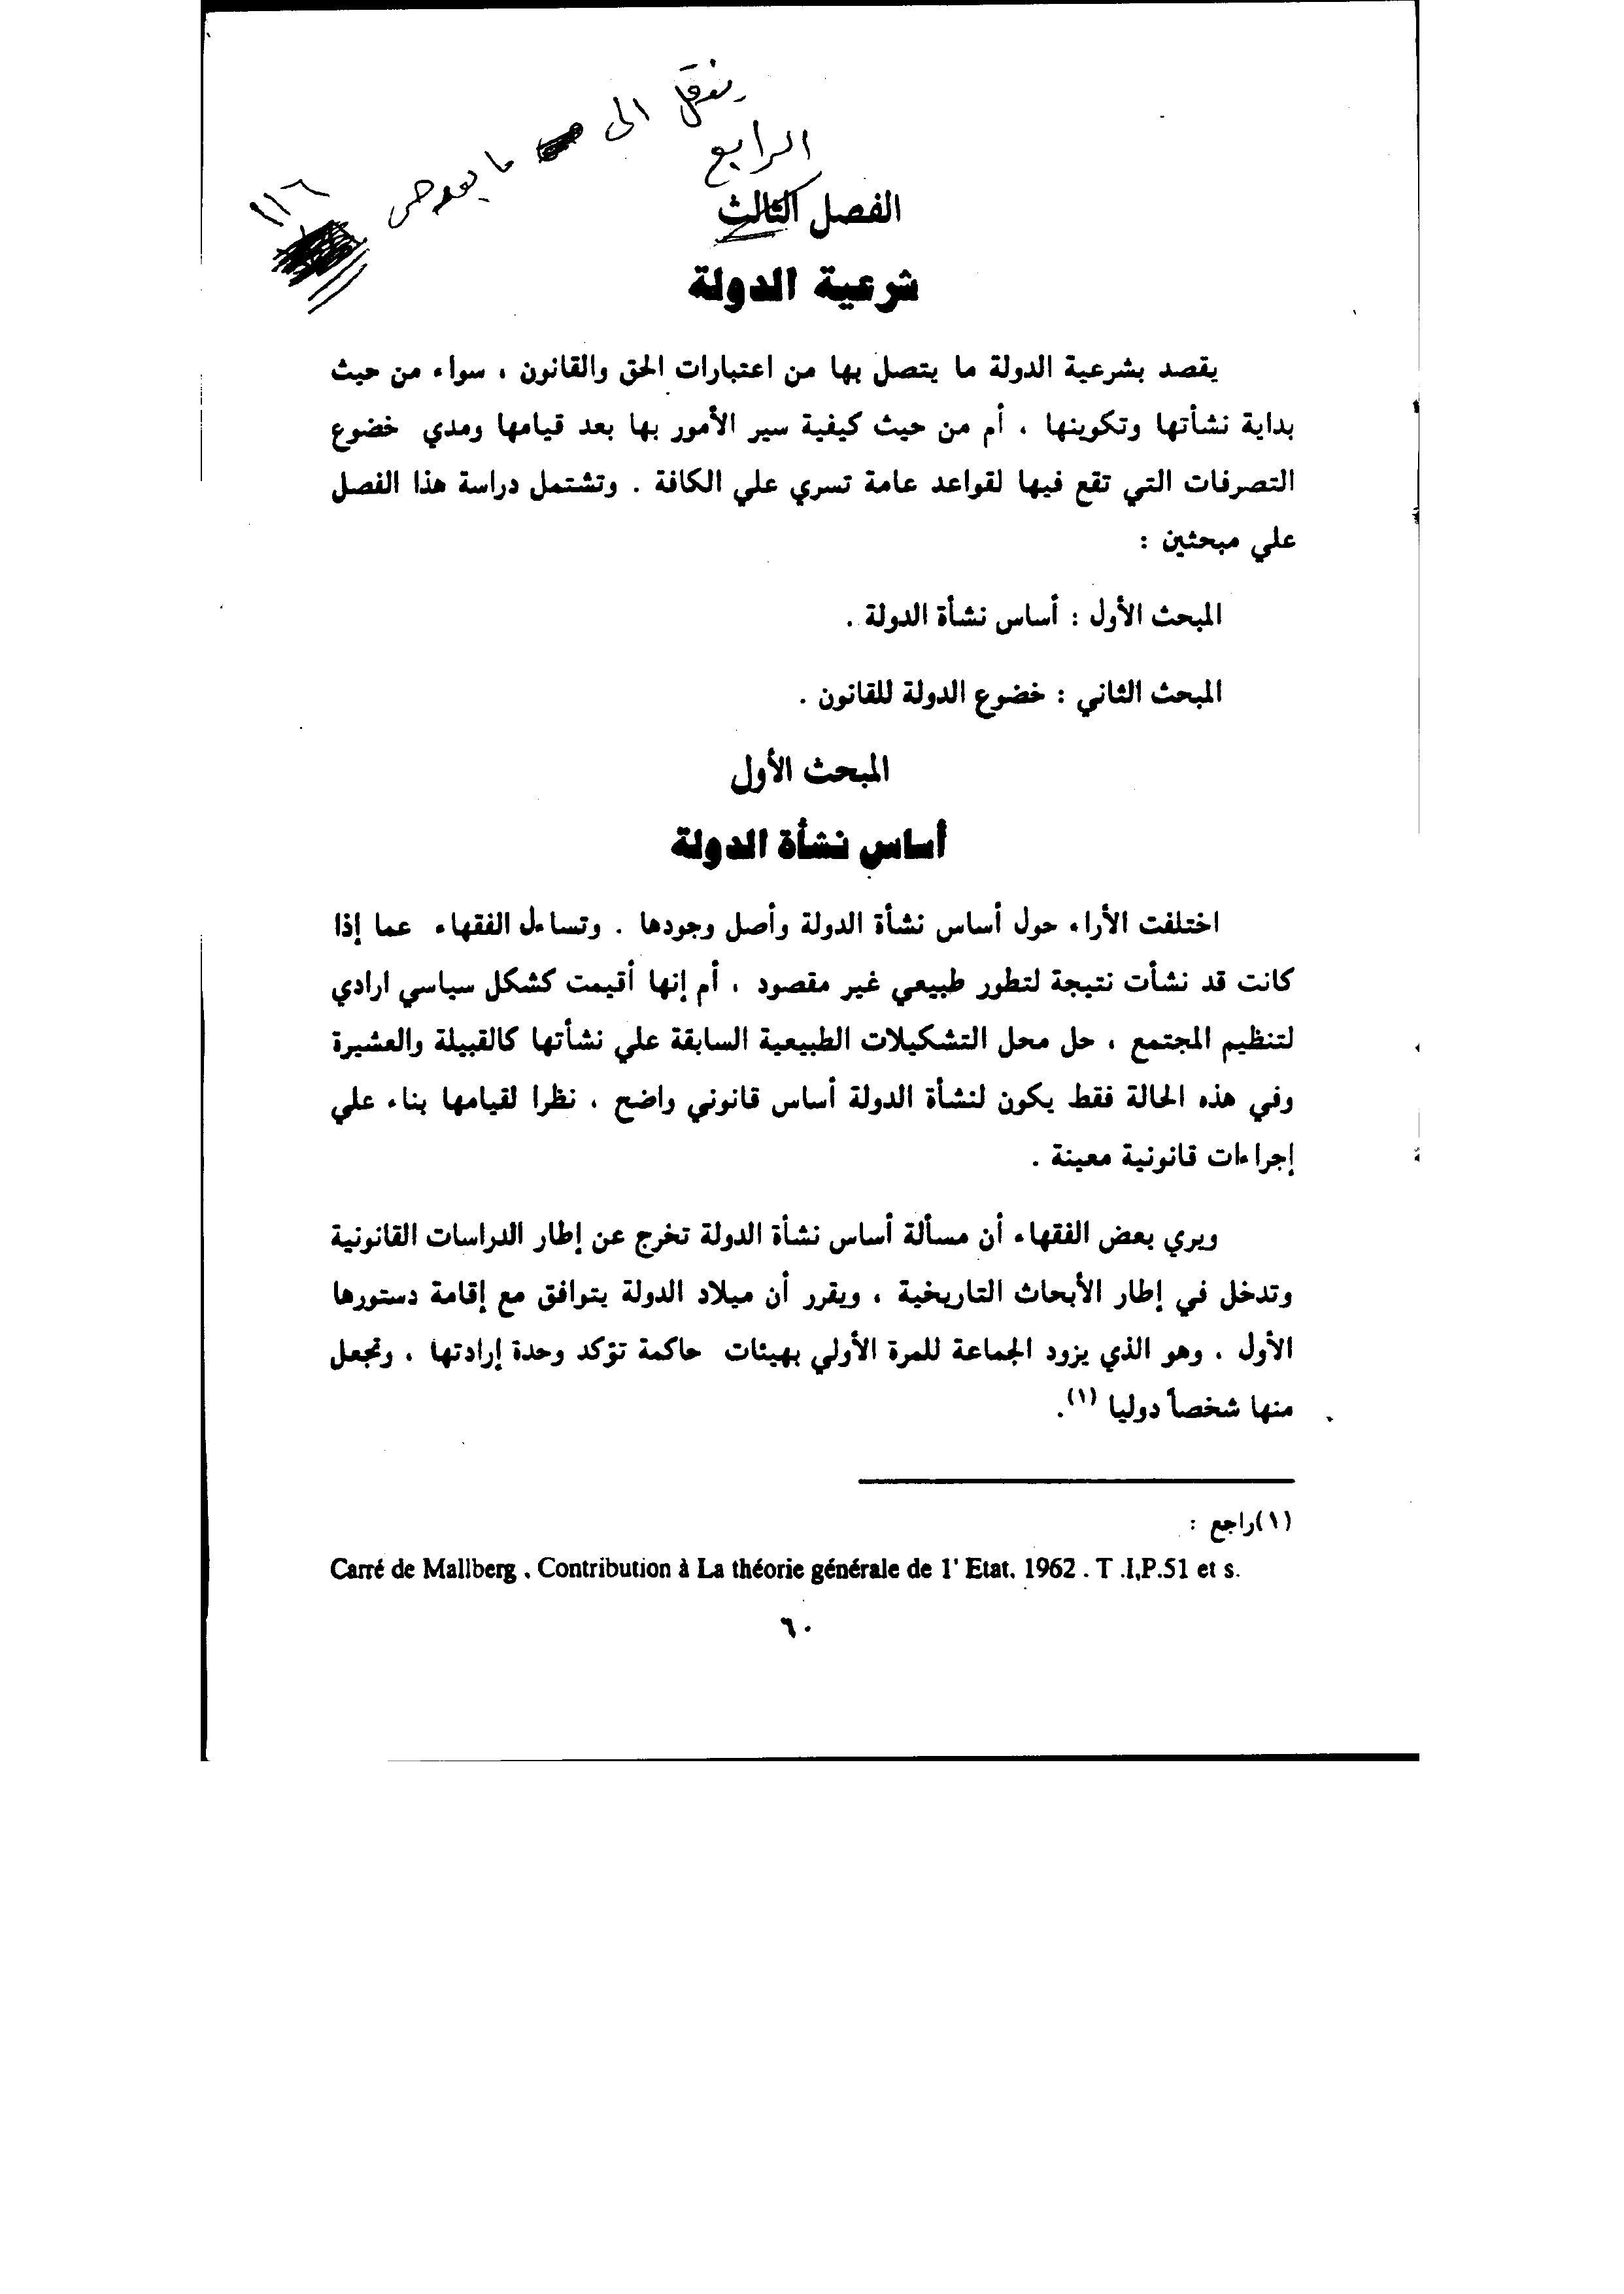 ينقل الى ما بعد ص ١١٦
الرابع
الفصل الثالث
شرعية الدولة
يقصد بشرعية الدولة ما يتصل بها من اعتبارات الحق والقانون ، سواء من حيث
بداية نشأتها وتكوينها ، أم من حيث كيفية سير الأمور بها بعد قيامها ومدي خضوع
التصرفات التي تقع فيها لقواعد عامة تسري علي الكافة . وتشتمل دراسة هذا الفصل
علي مبحثين :
المبحث الأول : أساس نشأة الدولة .
المبحث الثاني : خضوع الدولة للقانون .
المبحث الأول
أساس نشأة الدولة
اختلفت الأراء حول أساس نشأة الدولة وأصل وجودها . وتساءل الفقهاء عما إذا
كانت قد نشأت نتيجة لتطور طبيعي غير مقصود ، أم إنها أقيمت كشكل سياسي ارادي
لتنظيم المجتمع ، حل محل التشكيلات الطبيعية السابقة علي نشأتها كالقبيلة والعشيرة
وفي هذه الحالة فقط يكون لنشأة الدولة أساس قانوني واضح ، نظرا لقيامها بناء علي
إجراءات قانونية معينة .
ويري بعض الفقهاء أن مسألة أساس نشأة الدولة تخرج عن إطار الدراسات القانونية
وتدخل في إطار الأبحاث التاريخية ، ويقرر أن ميلاد الدولة يتوافق مع إقامة دستورها
الأول ، وهو الذي يزود الجماعة للمرة الأولي بهيئات حاكمة تؤكد وحدة إرادتها ، وتجعل
منها شخصاً دوليا (١).
(١)راجع :
Carré de Mallberg , Contribution à La théorie générale de l' Etat. 1962 . T .I,P.51 et s.
٦٠